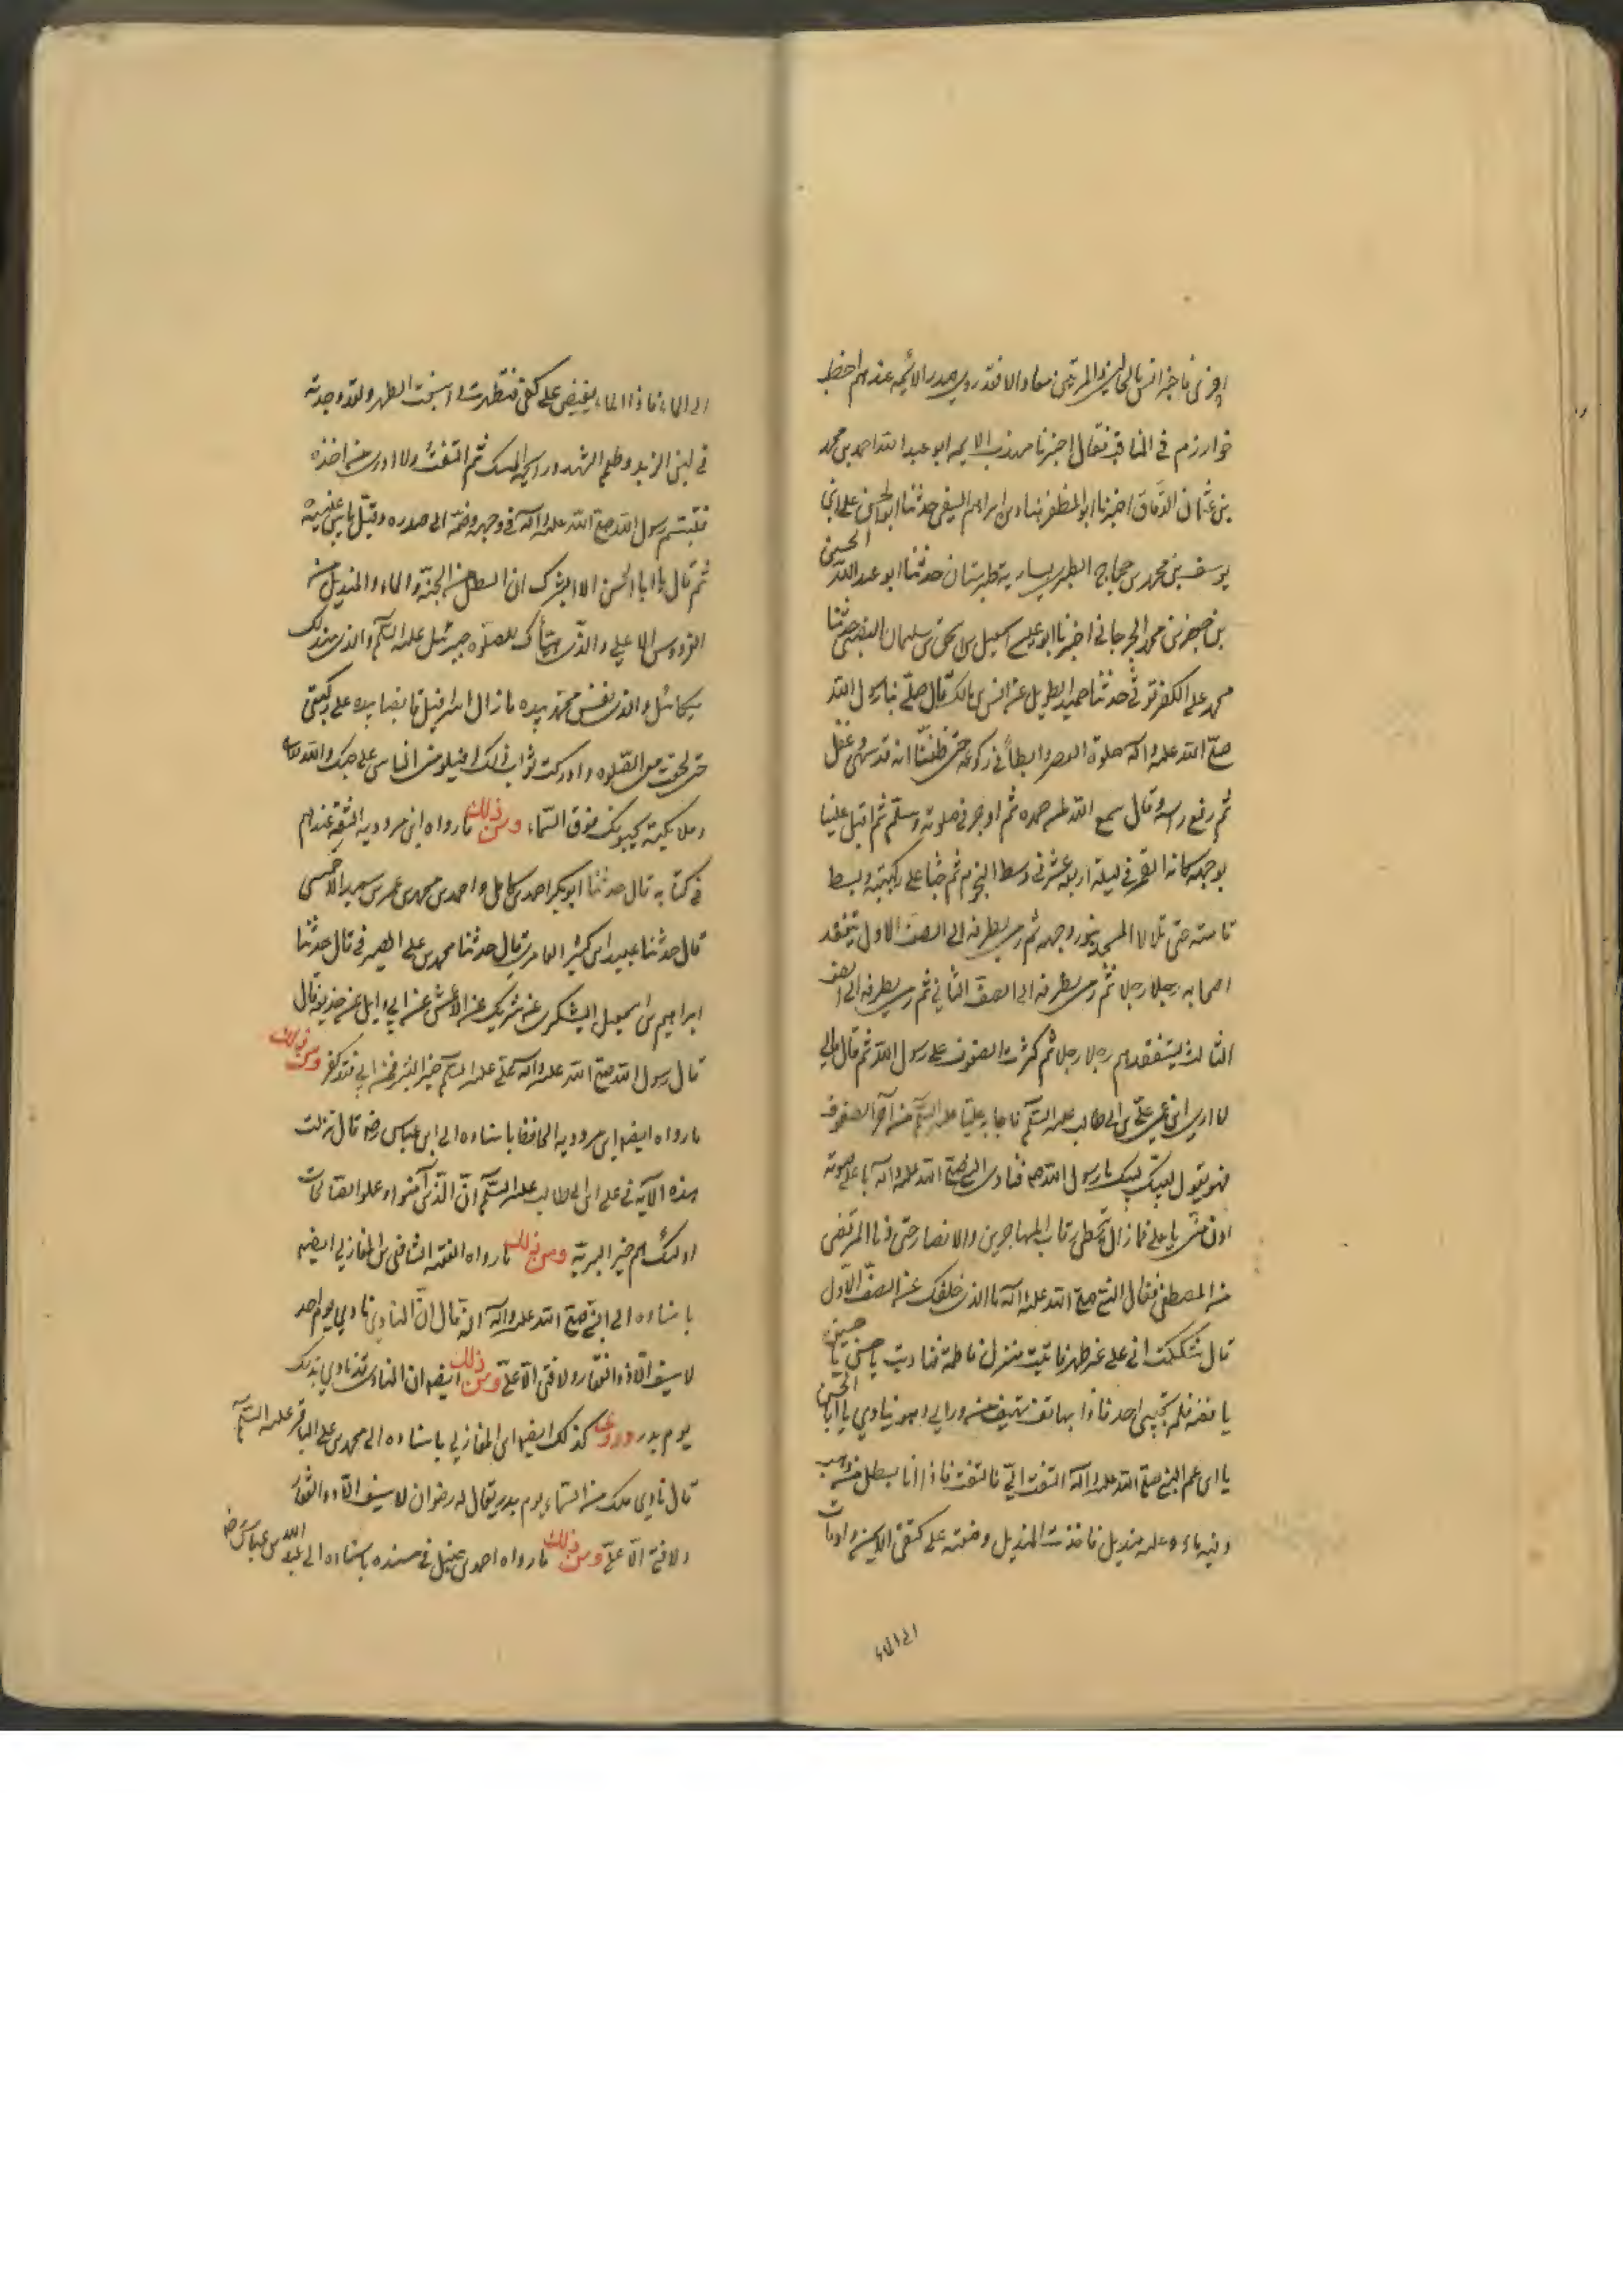 خوارزم في المناقب فقال اخبرنا مهذب الايمه ابو عبد الله احمد بن محمد
بن عثمان الدقاق اخبرنا ابو المظفر هناد بن ابراهيم النسفي حدثنا ابو الحسن علي بن
يوسف بن محمد بن حجاج الطبري بساريه طبرستان حدثنا ابو عبد الله الحسين
بن جعفر بن محمد الجرجاني اخبرنا ابو عيسى اسمعيل بن اسحق بن سليمان النصيبي حدثنا
محمد بن علي الكفرتوثي حدثنا حميد الطويل عن انس بن مالك قال صلى بنا رسول الله
صلى الله عليه واله صلوة العصر وابطأ في ركوعه حتى ظننا انه قد سهى وغفل
ثم رفع راسه وقال سمع الله لمن حمده ثم اوجز في صلوته وسلم ثم اقبل علينا
بوجهه كانه القمر في ليلة اربعة عشر في وسط النجوم ثم جثا على ركبتيه وبسط
قامته حتى تلالا المسجد بنور وجهه ثم رمى بطرفه الى الصف الاول يتفقد
اصحابه رجلا رجلا ثم رمى بطرفه الى الصف الثاني ثم رمى بطرفه الى الصف
الثالث يتفقدهم رجلا رجلا ثم كثرت الصفوف على رسول الله ثم قال مالي
لا ارى ابن عمي علي بن ابي طالب عليه السلم فاجابه عليا عليه السلم من آخر الصفوف
فهو يقول لبيك لبيك يا رسول الله فنادى النبي صلى الله عليه واله باعلى صوته
ادن مني يا علي فما زال يتخطى رقاب المهاجرين والانصار حتى دنا المرتضى
من المصطفى فقال النبي صلى الله عليه واله ما الذي خلفك عن الصف الاول
قال شككت اني على غير طهر فاتيت منزل فاطمة فناديت يا حسن يا حسين
يا فضه فلم يجبني احد فاذا بهاتف يهتف من ورائي وهو ينادي يا ابا الحسن
يا ابن عم النبي صلى الله عليه واله التفت الي فالتفت فاذا انا بسطل من ذهب
وفيه ماء وعليه منديل فاخذت المنديل ووضعته على كتفي الايمن واومات
الى الماء
الى الماء فاذا الماء يفيض على كفي فتطهرت واسبغت الطهر ولقد وجدته
في لين الزبد وطعم الشهد ورايحة المسك ثم التفت ولا ادري من اخذه
فتبسم رسول الله صلى الله عليه واله في وجهه وضمه الى صدره وقبل ما بين عينيه
ثم قال يا ابا الحسن الا ابشرك ان السطل من الجنة والماء والمنديل من
الفردوس الاعلى والذي هيأك للصلوه جبرئيل عليه السلم والذي مندلك
ميكائيل والذي نفس محمد بيده ما زال اسرافيل قابضا بيده على ركبتي
حتى لحقت معي الصلوه وادركت ثواب ذلك افيلومني الناس على حبك والله تعالى
وملايكته يحبونك فوق السماء ومن ذلك ما رواه ابن مردويه الثقة عندهم
في كتابه قال حدثنا ابو بكر احمد بن كامل واحمد بن محمد بن عمر بن سعيد الاحمسي
قال حدثنا عبيد بن كثير العامري قال حدثنا محمد بن علي الصيرفي قال حدثنا
ابراهيم بن اسمعيل اليشكري عن شريك عن الاعمش عن ابي وايل عن حذيفه قال
قال رسول الله صلى الله عليه واله علي عليه السلم خير البشر فمن ابى فقد كفر ومن ذلك
ما رواه ايضا ابن مردويه الحافظ باسناده الى ابن عباس رضه قال نزلت
هذه الاية في علي بن ابي طالب عليه السلم ان الذين آمنوا وعملوا الصالحات
اولئك هم خير البرية ومن ذلك ما رواه الفقيه الشافعي بن المغازلي ايضا
باسناده الى النبي صلى الله عليه واله انه قال ان المنادي نادى يوم احد
لا سيف الا ذو الفقار ولا فتى الا علي ومن ذلك ايضا ان المنادي قد نادى بذلك
يوم بدر وروى كذلك ايضا ابن المغازلي باسناده الى محمد بن علي الباقر عليه السلم
قال نادى ملك من السماء يوم بدر يقال له رضوان لا سيف الا ذو الفقار
ولا فتى الا علي ومن ذلك ما رواه احمد بن حنبل في مسنده باسناده الى عبد الله بن عباس رضه